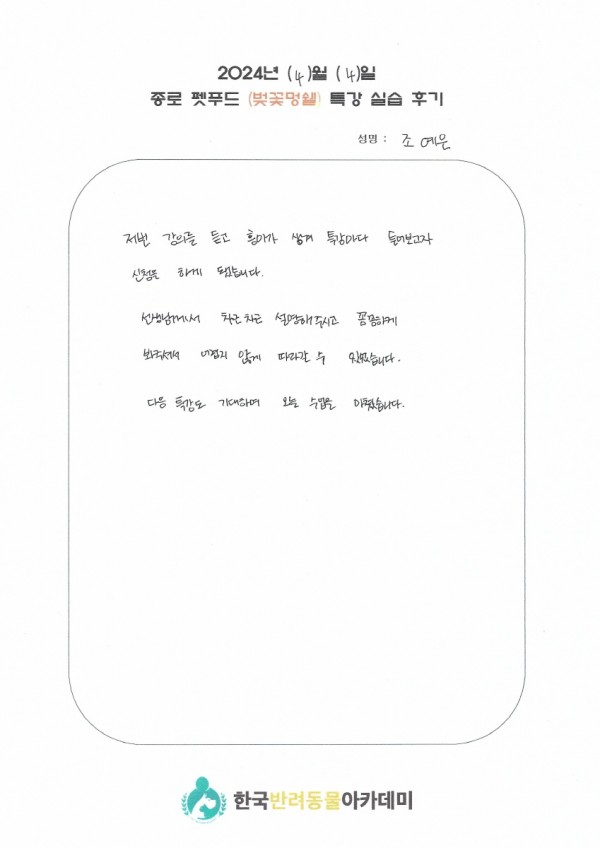 2024년 (4)월 (4)일
종로 펫푸드 (벚꽃멍쉘) 특강 실습 후기
성명 : 조예은
저번 강의를 듣고 흥미가 생겨 특강마다 들어보고자
신청을 하게 됐습니다.
선생님께서 차근차근 설명해주시고 꼼꼼하게
봐주셔서 어렵지 않게 따라갈 수 있었습니다.
다음 특강도 기대하며 오늘 수업을 마쳤습니다.
한국반려동물아카데미